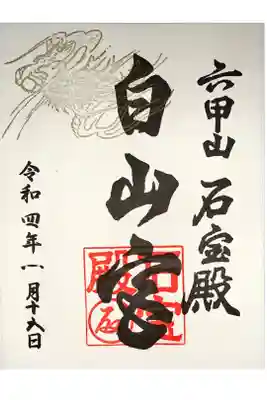 六甲山 石宝殿
白山宮
令和四年八月十六日
石宝
殿